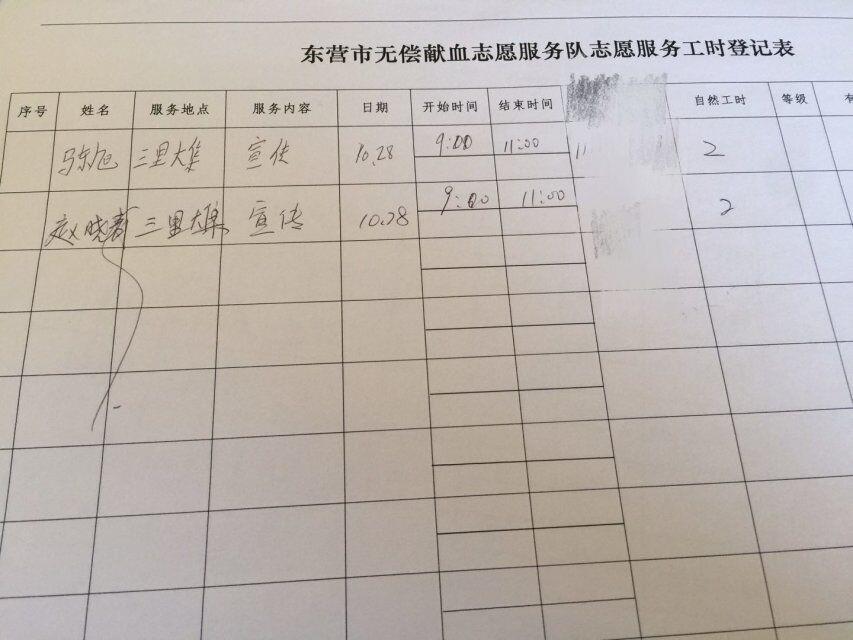 东营市无偿献血志愿服务队志愿服务工时登记表
序号 姓名 服务地点 服务内容 日期 开始时间 结束时间 自然工时 等级 有
马东旭 三里大集 宣传 10.28 9:00 11:00 2
赵晓 三里大集 宣传 10.28 9:00 11:00 2